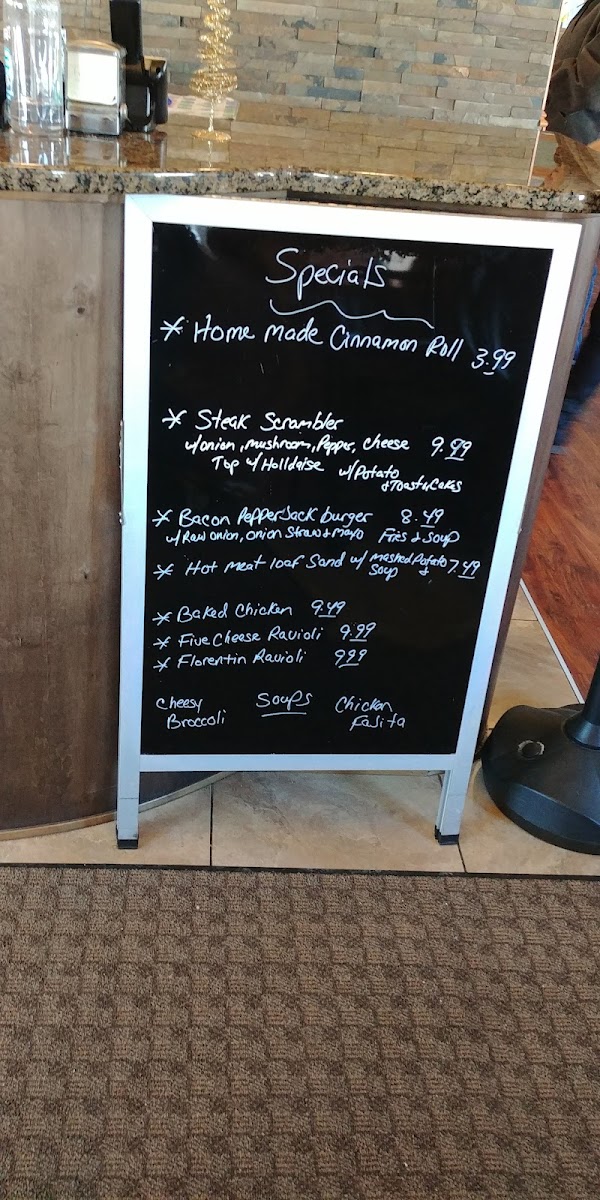 Specials
* Home made Cinnamon Roll 3.99
* Steak Scrambler
w/onion, mushroom, Pepper, cheese 9.99
Top w/ Holldaise w/Potato
& Toast or Cakes
* Bacon PepperJack burger 8.49
w/ Raw onion, onion Straw & Mayo Fries & Soup
* Hot meat loaf Sand w/ mashed Potato 7.49
Soup &
* Baked Chicken 9.49
* Five Cheese Ravioli 9.99
* Florentin Ravioli 9.99
Cheesy Soups Chicken
Broccoli Fajita